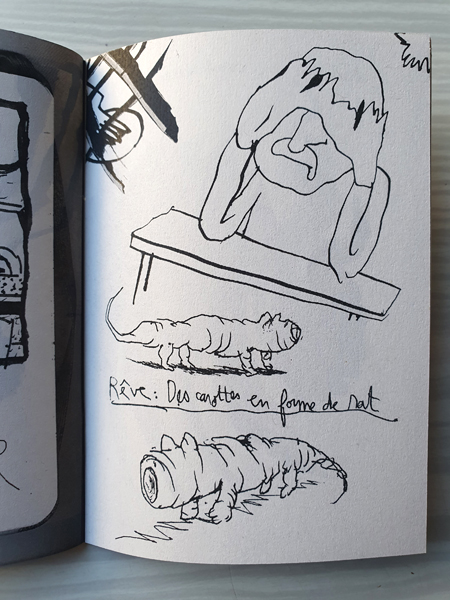 Rêve : Des carottes en forme de rat